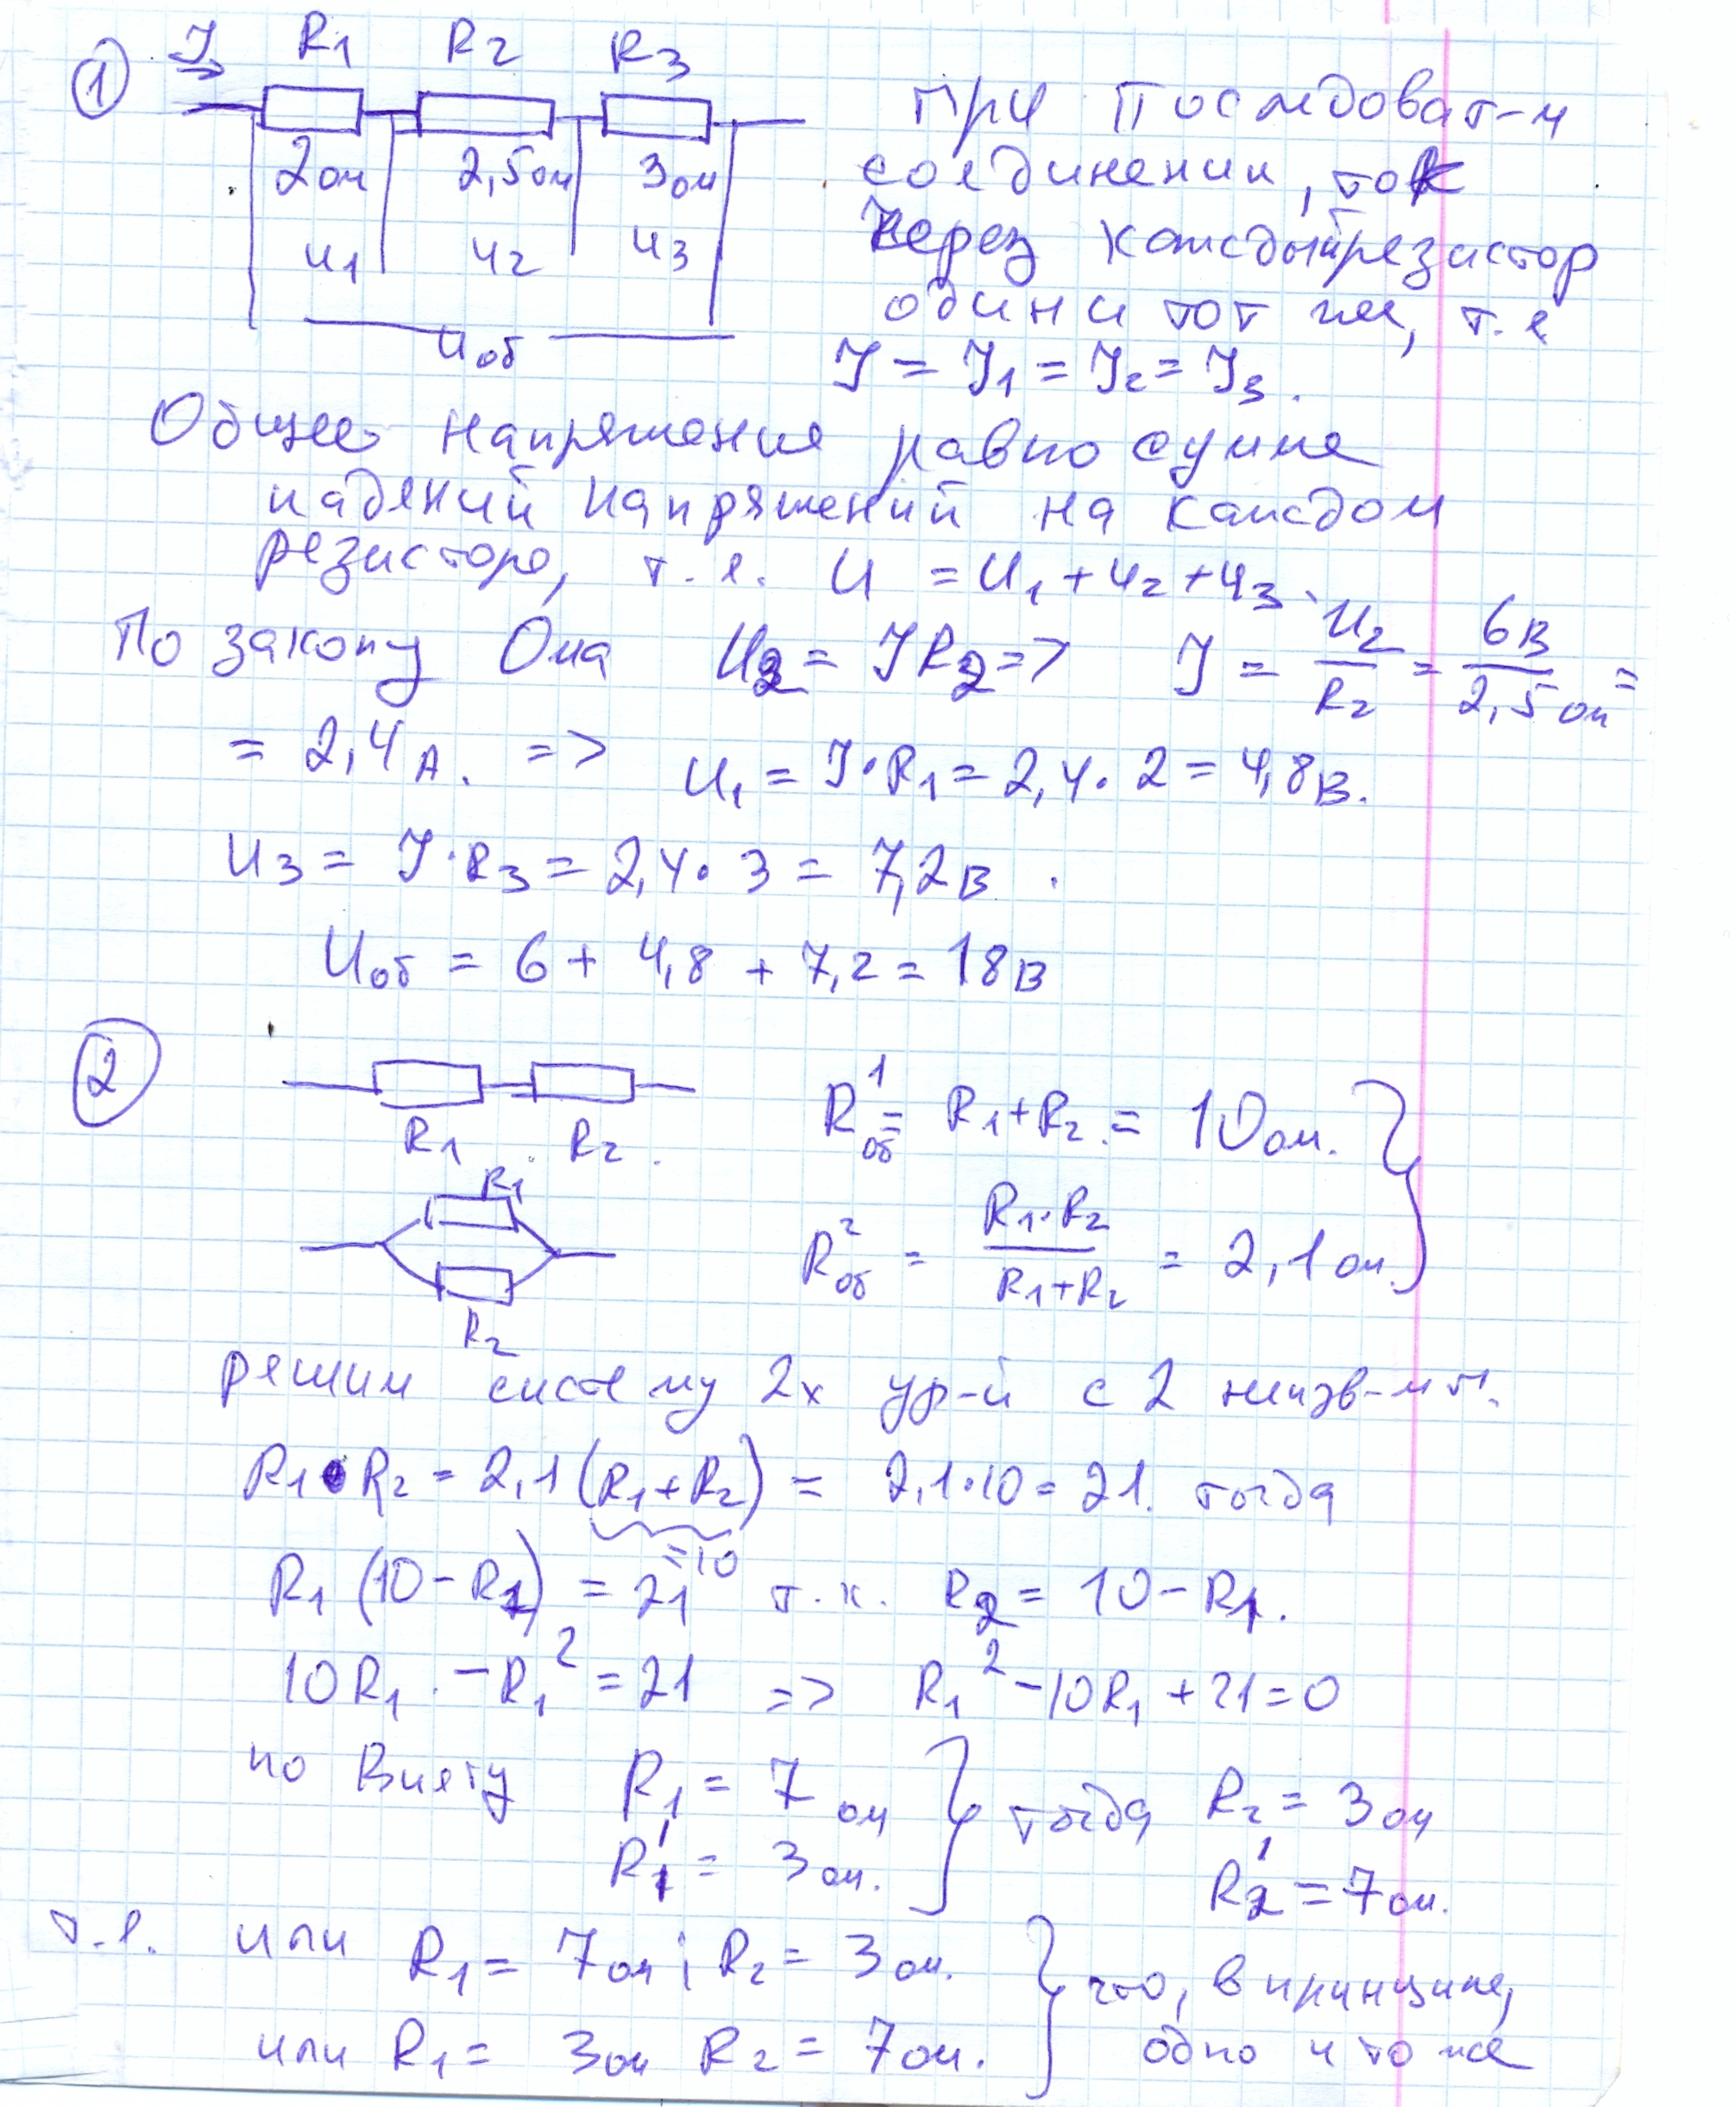 1 I R1 R2 R3
2ом 2,5ом 3ом
u1 u2 u3
uоб
При последоват-м
соединении, ток
через каждый резистор
один и тот же, т.е
I = I1 = I2 = I3.
Общее напряжение равно сумме
падений напряжений на каждом
резисторе, т.е. U = U1 + U2 + U3.
По закону Ома U2 = IR2 => I = U2/R2 = 6В/2,5ом =
= 2,4А. => U1 = I·R1 = 2,4·2 = 4,8В.
U3 = I·R3 = 2,4·3 = 7,2В.
Uоб = 6 + 4,8 + 7,2 = 18В
2
R1 R2
Rоб¹ = R1+R2 = 10ом.
R1
R2
Rоб² = R1·R2/(R1+R2) = 2,1ом.
решим систему 2х ур-й с 2 неизв-ми.
R1·R2 = 2,1(R1+R2) = 2,1·10 = 21. тогда
=10
R1(10-R1) = 21 т.к. R2 = 10-R1.
10R1 - R1² = 21 => R1² - 10R1 + 21 = 0
по Виету R1 = 7ом тогда R2 = 3ом
R1' = 3ом. R2' = 7ом.
т.е. или R1 = 7ом; R2 = 3ом. что, в принципе,
или R1 = 3ом R2 = 7ом. одно и то же